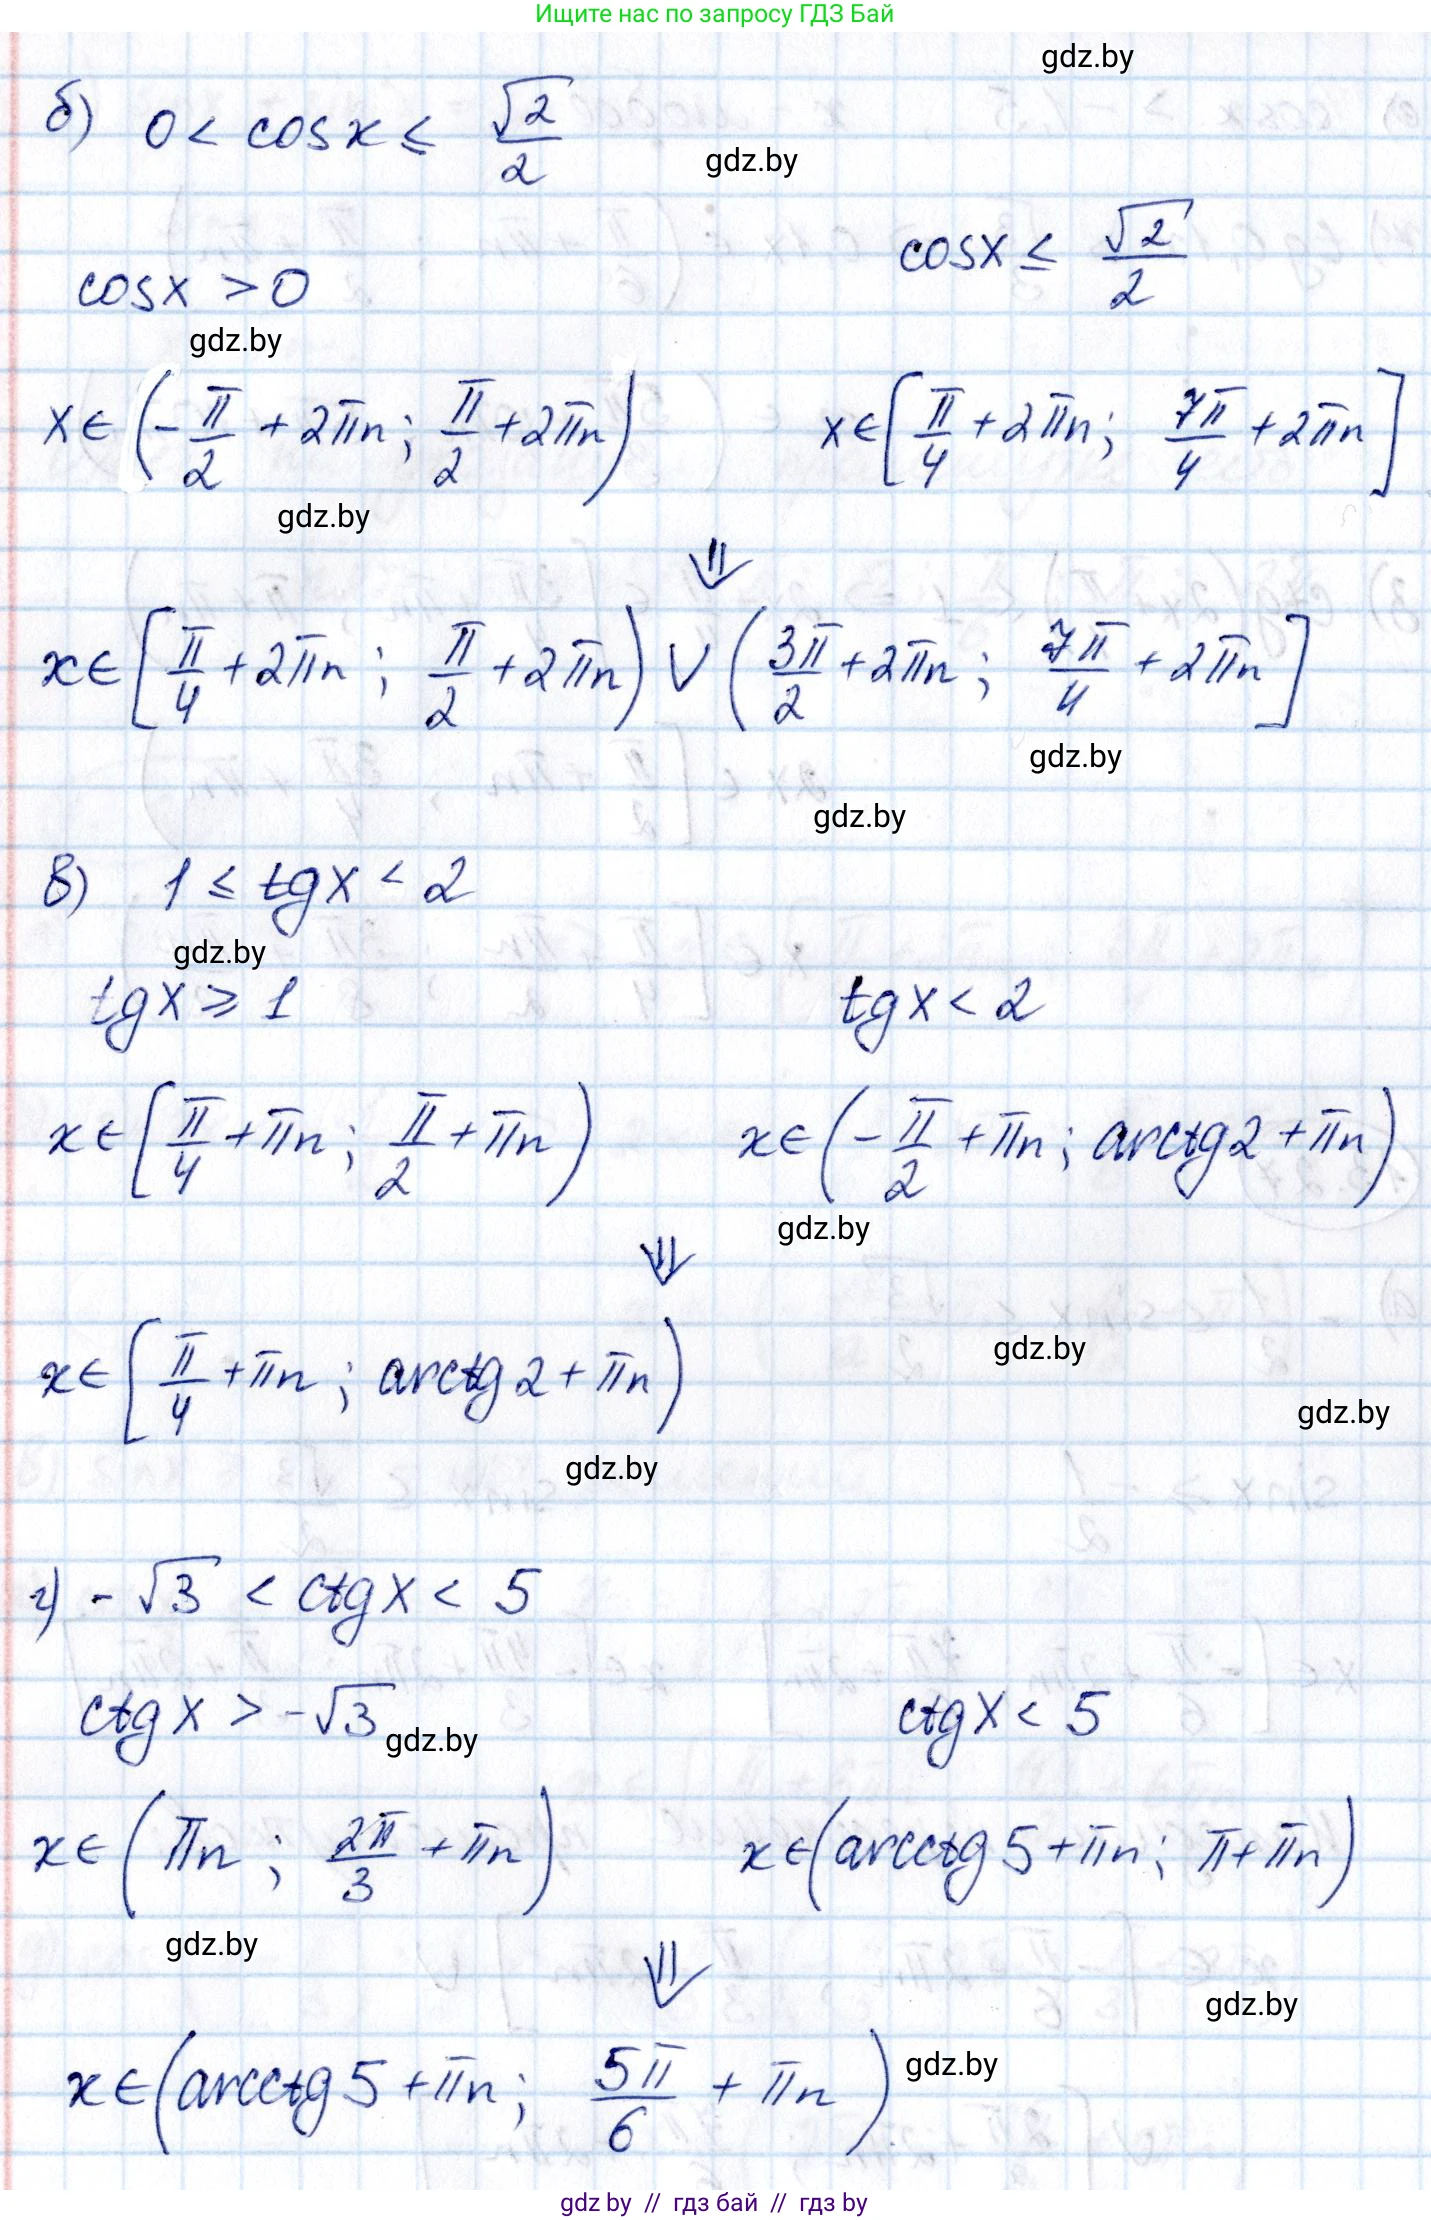 Ищите нас по запросу ГДЗ Бай
gdz.by
б) 0 < cosx ≤ √2/2
gdz.by
cosx > 0    cosx ≤ √2/2
gdz.by
x∈(-π/2 + 2πn; π/2 + 2πn)    x∈[π/4 + 2πn; 7π/4 + 2πn]
gdz.by
⇓
x∈[π/4 + 2πn; π/2 + 2πn) ∨ (3π/2 + 2πn; 7π/4 + 2πn]
gdz.by
gdz.by
в) 1 ≤ tgx < 2
gdz.by
tgx ≥ 1    tgx < 2
x∈[π/4 + πn; π/2 + πn)    x∈(-π/2 + πn; arctg2 + πn)
gdz.by
⇓
x∈[π/4 + πn; arctg2 + πn)
gdz.by
gdz.by
gdz.by
г) -√3 < ctgx < 5
ctgx > -√3    ctgx < 5
gdz.by
x∈(πn; 2π/3 + πn)    x∈(arcctg5 + πn; π + πn)
gdz.by
⇓
gdz.by
x∈(arcctg5 + πn; 5π/6 + πn)
gdz.by
gdz by // гдз бай // гдз by